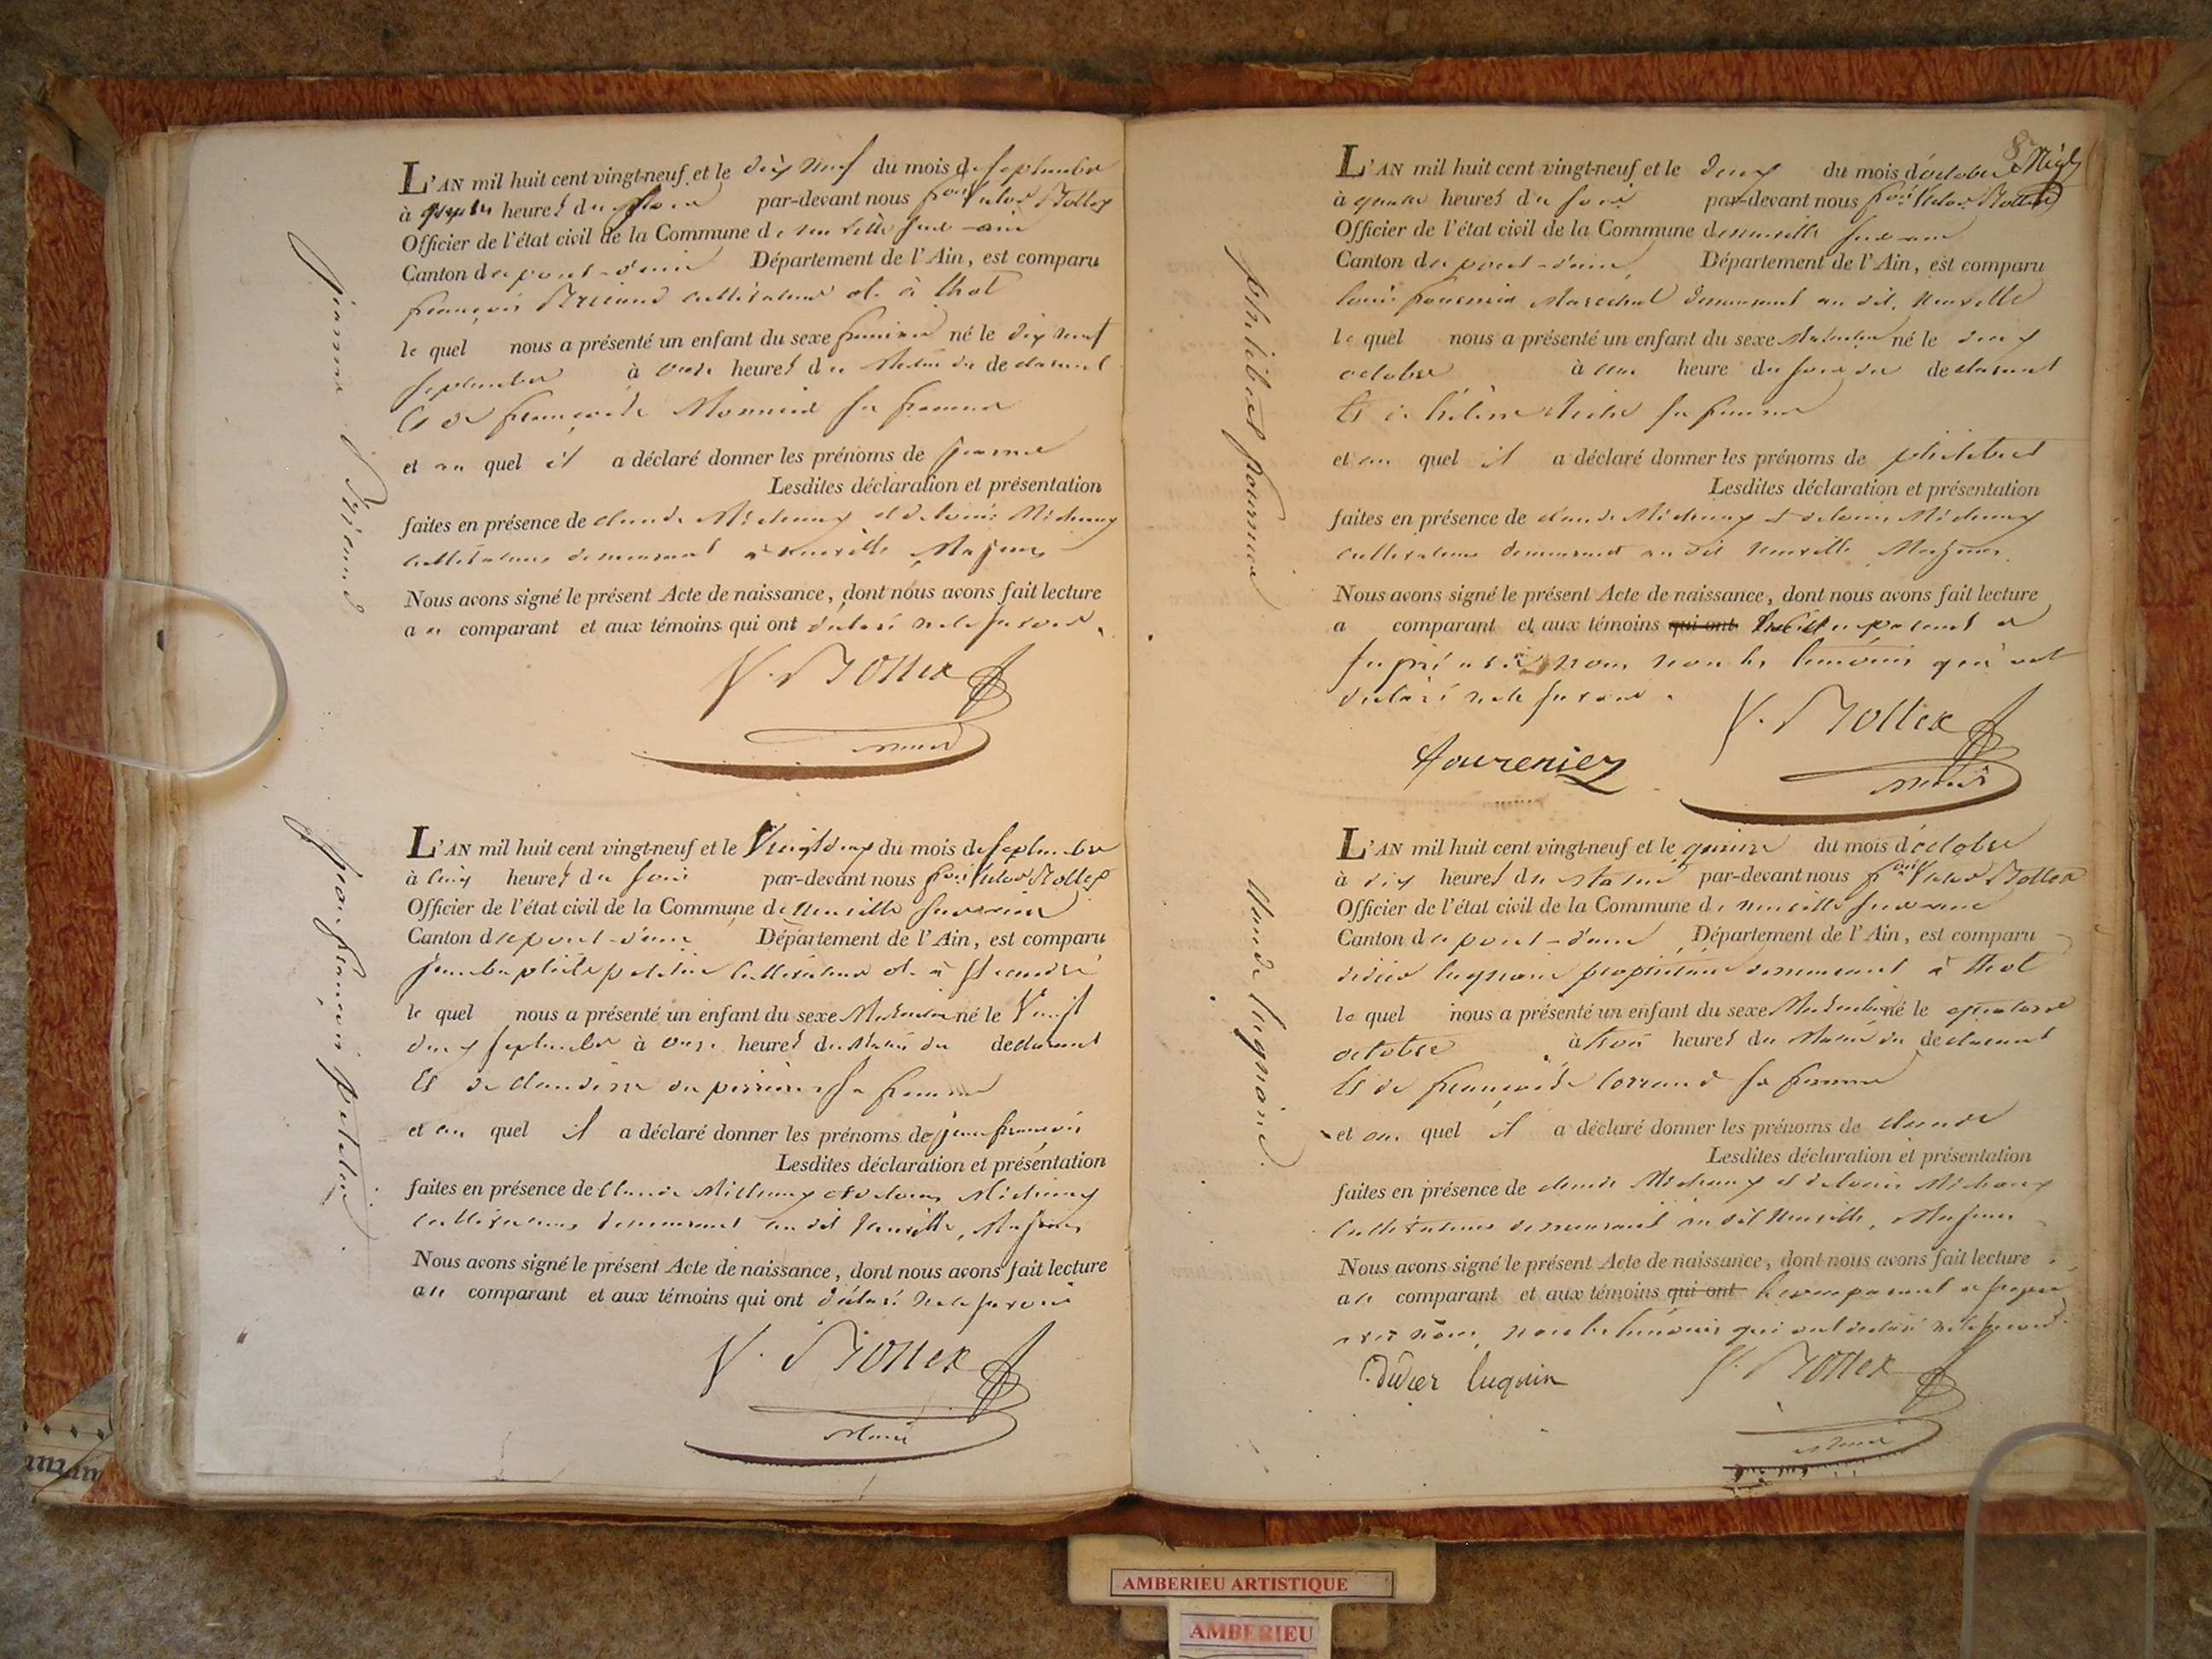 L'AN mil huit cent vingt-neuf et le dix neuf du mois de septembre
à quatre heures du soir par-devant nous fois Victor Bollex
Officier de l'état civil de la Commune de neuville sur ain
Canton de pont-d'ain Département de l'Ain, est comparu
françois cultivateur à thol
le quel nous a présenté un enfant du sexe feminin né le dix neuf
septembre à onze heures du Matin du declarant
Et de françoise Monnier sa femme
et au quel il a déclaré donner les prénoms de jeanne
Lesdites déclaration et présentation
faites en présence de claude Michaux et de louis Michaux
cultivateurs demeurant à neuville Majeurs
Nous avons signé le présent Acte de naissance, dont nous avons fait lecture
au comparant et aux témoins qui ont déclaré ne le savoir.
V. Bollex
maire
jeanne
L'AN mil huit cent vingt-neuf et le Vingt deux du mois de septembre
à cinq heures du soir par-devant nous fois Victor Bollex
Officier de l'état civil de la Commune de Neuville sur ain
Canton de pont-d'ain Département de l'Ain, est comparu
jean baptiste cultivateur à St andré
le quel nous a présenté un enfant du sexe Masculin né le Vingt
deux septembre à onze heures du Matin du declarant
Et de claudine sa femme
et au quel il a déclaré donner les prénoms de jean françois
Lesdites déclaration et présentation
faites en présence de Claude Michaux et de louis Michaux
cultivateurs demeurant au dit Neuville, Majeurs
Nous avons signé le présent Acte de naissance, dont nous avons fait lecture
au comparant et aux témoins qui ont déclaré ne le savoir
V. Bollex
Maire
jean françois
L'AN mil huit cent vingt-neuf et le deux du mois d'octobre
à quatre heures du soir par-devant nous fois Victor Bollex
Officier de l'état civil de la Commune de neuville sur ain
Canton de pont-d'ain Département de l'Ain, est comparu
louis fournier Marechal demeurant au dit Neuville
le quel nous a présenté un enfant du sexe Masculin né le deux
octobre à une heure du soir du declarant
Et de hélène sa femme
et au quel il a déclaré donner les prénoms de philibert
Lesdites déclaration et présentation
faites en présence de claude Michaux et de louis Michaux
cultivateurs demeurant au dit Neuville Majeurs
Nous avons signé le présent Acte de naissance, dont nous avons fait lecture
a comparant et aux témoins qui ont le comparant a
signé avec nous non les témoins qui ont
déclaré ne le savoir.
V. Bollex
fourenier
maire
philibert fournier
L'AN mil huit cent vingt-neuf et le quinze du mois d'octobre
à dix heures du matin par-devant nous fois Victor Bollex
Officier de l'état civil de la Commune de neuville sur ain
Canton de pont-d'ain Département de l'Ain, est comparu
didier luquain propriétaire demeurant à thol
le quel nous a présenté un enfant du sexe Masculin né le quatorze
octobre à trois heures du Matin du declarant
Et de françoise sa femme
et au quel il a déclaré donner les prénoms de claude
Lesdites déclaration et présentation
faites en présence de claude Michaux et de louis Michaux
cultivateurs demeurant au dit Neuville, Majeurs
Nous avons signé le présent Acte de naissance, dont nous avons fait lecture
au comparant et aux témoins qui ont le comparant a signé
avec nous, non les témoins qui ont déclaré ne le savoir.
Didier luquin
V. Bollex
Maire
claude
AMBERIEU ARTISTIQUE
AMBERIEU